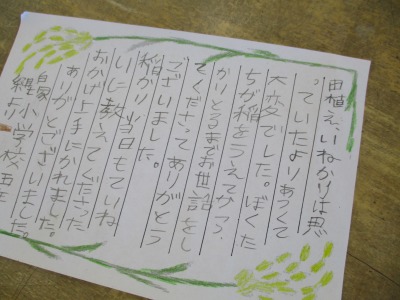 田植え、いねかりは思
っていたよりあつくて
大変でした。ぼくた
ちが稲をうえてから、
かりとるまでお世話をし
てくださってありがとう
ございました。
稲かり当日もていね
いに教えてくださった
おかげ上手にかれました。
ありがとございました。
小学校五年